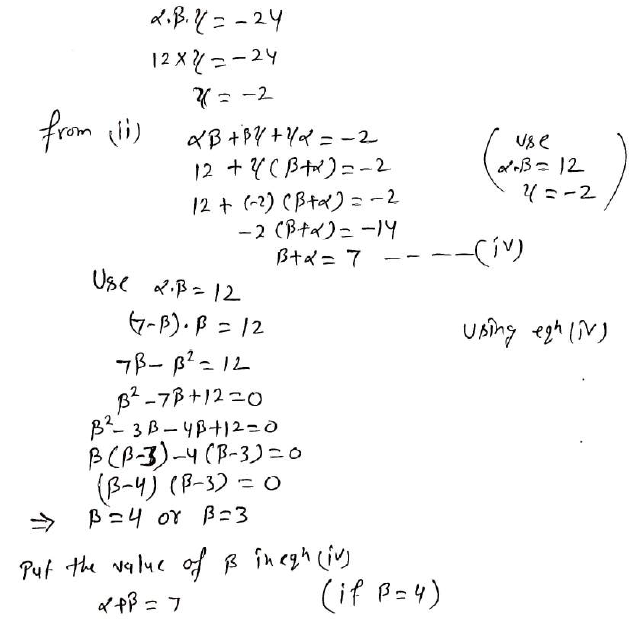 α.β.γ = -24
12 × γ = -24
γ = -2
from (ii) αβ + βγ + γα = -2
12 + γ(β+α) = -2
12 + (-2)(β+α) = -2
(use α.β = 12 γ = -2)
-2(β+α) = -14
β+α = 7 - - - - (iv)
Use α.β = 12
(7-β).β = 12 Using eqn (iv)
7β - β² = 12
β² - 7β + 12 = 0
β² - 3β - 4β + 12 = 0
β(β-3) - 4(β-3) = 0
(β-4)(β-3) = 0
⇒ β = 4 or β = 3
Put the value of β in eqn (iv)
α+β = 7 (if β = 4)